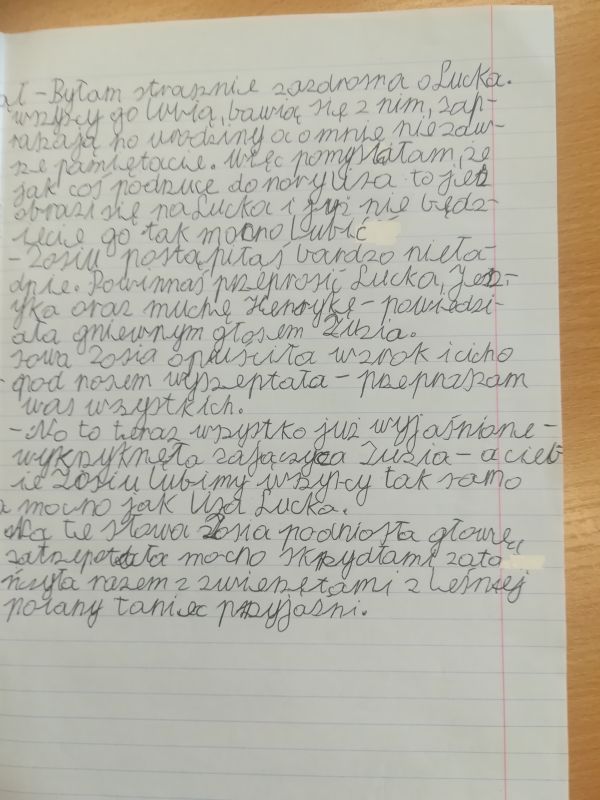 ął - Byłam strasznie zazdrosna o Lucka.
wszyscy go lubią, bawią się z nim, zap-
raszają no urodziny a o mnie nie zaw-
sze pamiętacie. Więc pomyślałam, że
jak coś podrzucę do nory lisa to jeż
obrazi się na Lucka i już nie będz-
iecie go tak mocno lubić
- Zosiu postąpiłaś bardzo nieła-
dnie. Powinnaś przeprosić Lucka, Jeż-
yka oraz muchę Henrykę - powiedzi-
ała gniewnym głosem Zuzia.
sowa Zosia opuściła wzrok i cicho
pod nosem wyszeptała - przepraszam
was wszystkich.
- No to teraz wszystko już wyjaśnione -
wykrzyknęła zajączyca Zuzia - a cieb
ie Zosiu lubimy wszyscy tak samo
mocno jak lisa Lucka.
Na te słowa Zosia podniosła głowę,
zatrzepotała mocno skrzydłami zata
ńczyła razem z zwierzętami z leśnej
polany taniec przyjaźni.